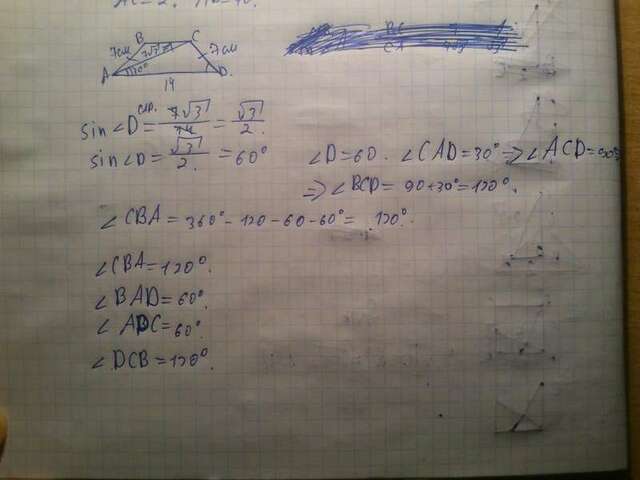 B C
7см 7√3 7см
A 30° D.
14
sin∠D = 7√3 / 14 = √3 / 2.
sin∠D = √3 / 2. = 60°
∠D=60. ∠CAD=30° => ∠ACD=90°
=> ∠BCD = 90+30°=120°.
∠CBA = 360°-120-60-60°= 120°.
∠CBA=120°.
∠BAD=60°.
∠ADC=60°.
∠DCB=120°.